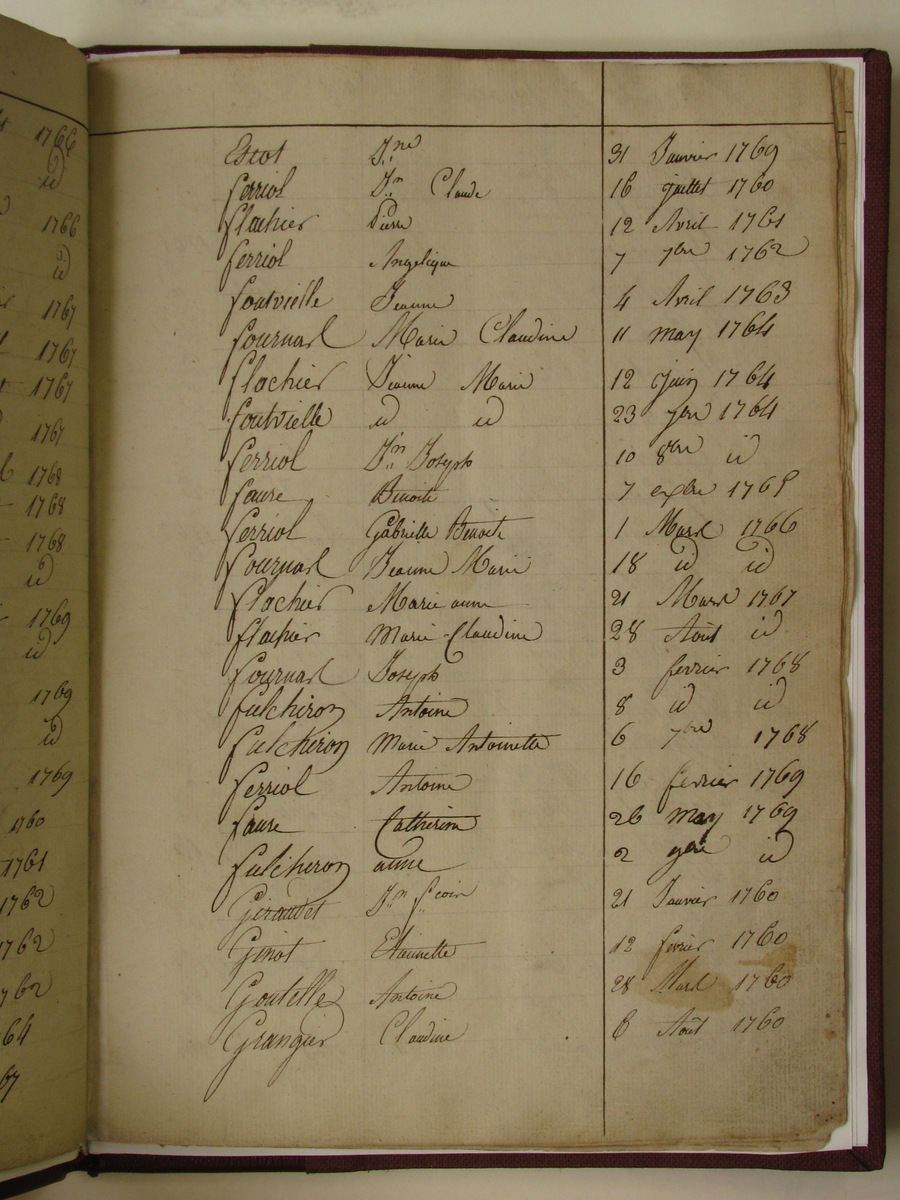 1766
id
1766
id
1767
1767
1767
1767
1768
1768
1768
id
1769
id
1769
id
1769
1760
1761
1762
1762
1762
64
67
Escot Jne 31 Janvier 1769
ferriol Jn Claude 16 juillet 1760
flachier Pierre 12 Avril 1761
ferriol Angelique 7 7bre 1762
fontvielle Jeanne 4 Avril 1763
fournarl Marie Claudine 11 may 1764
flachier Jeanne Marie 12 juin 1764
fontvielle id id 23 7bre 1764
ferriol Jn Joseph 10 8bre id
faure Benoite 7 1765
ferriol Gabrielle Benoite 1 Mars 1766
fournarl Jeanne Marie 18 id id
flachier Marie anne 21 Mars 1767
flachier Marie Claudine 28 Août id
fournarl Joseph 3 fevrier 1768
fulchiron Antoine 8 id id
fulchiron Marie Antoinette 6 7bre 1768
ferriol Antoine 16 fevrier 1769
faure Catherine 26 may 1769
fulchiron anne 2 9bre id
Giraudet Jn 21 Janvier 1760
Ginot Etiennette 12 fevrier 1760
Goutelle Antoine 28 Mars 1760
Grangier Claudine 6 Août 1760